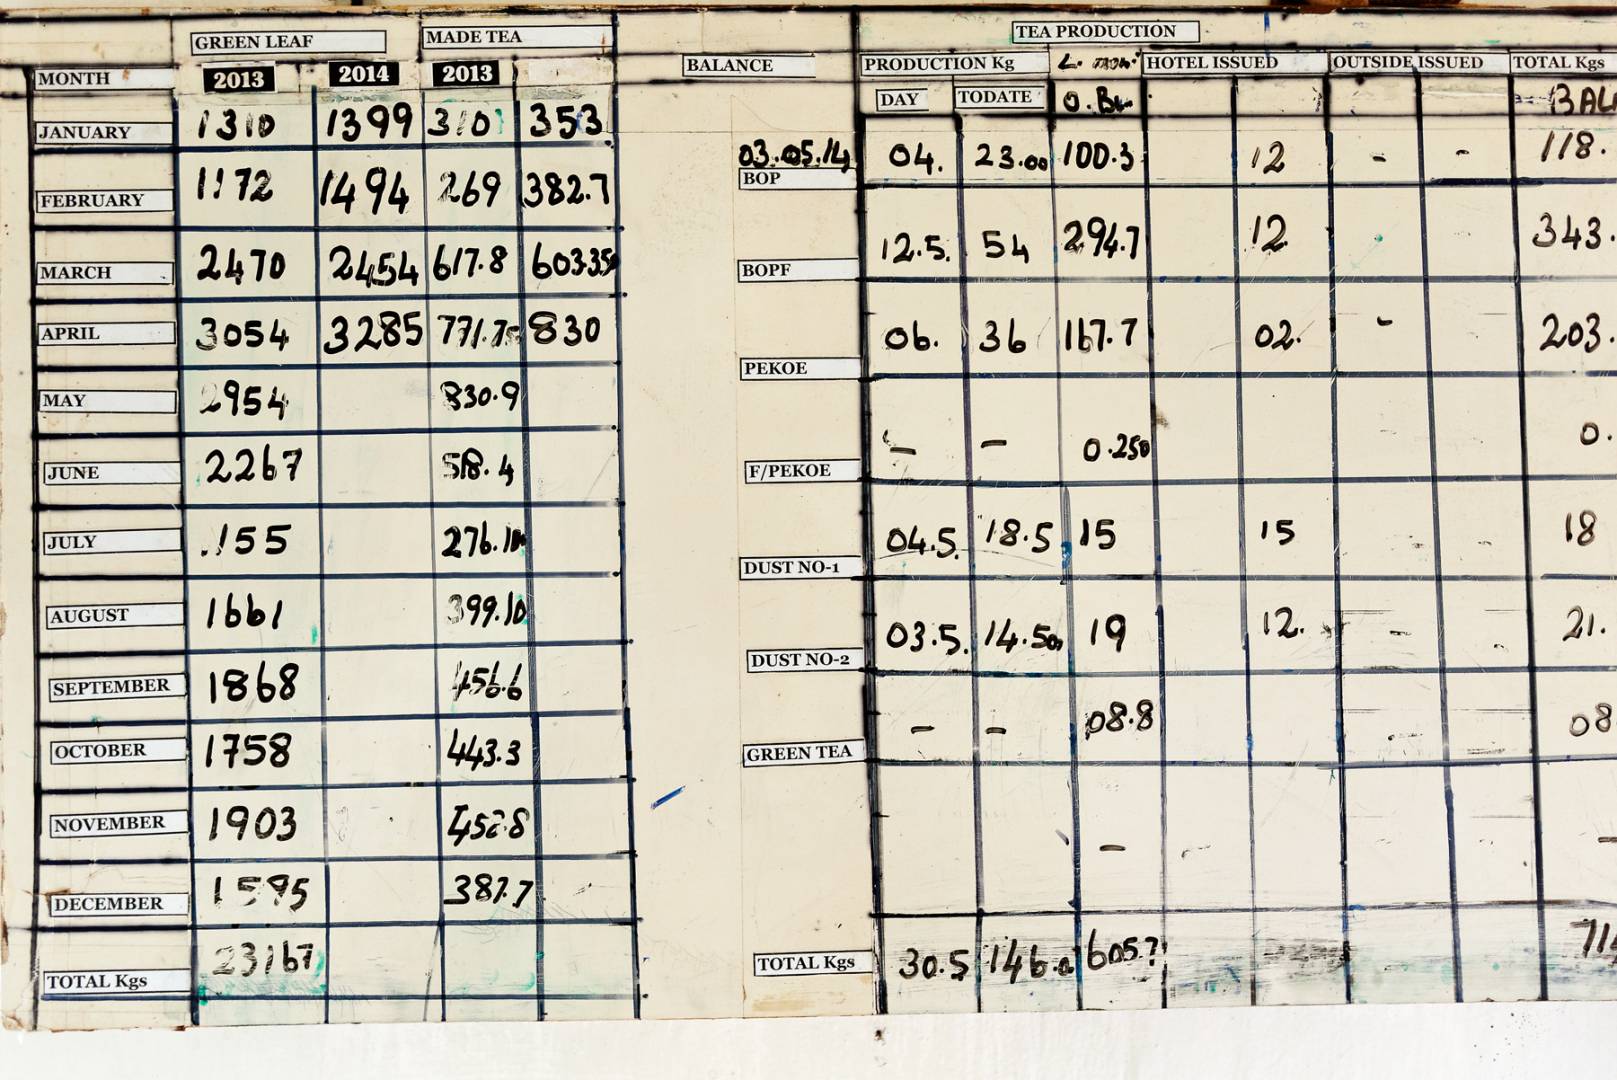 GREEN LEAF MADE TEA TEA PRODUCTION
MONTH 2013 2014 2013 BALANCE PRODUCTION Kg HOTEL ISSUED OUTSIDE ISSUED TOTAL Kgs
DAY TODATE O. BAL
JANUARY 1310 1399 310 353
FEBRUARY 1172 1494 269 382.7
MARCH 2470 2454 617.8 603.35
APRIL 3054 3285 771.75 830
MAY 2954 830.9
JUNE 2267 518.4
JULY 155 276.10
AUGUST 1661 399.10
SEPTEMBER 1868 456.6
OCTOBER 1758 443.3
NOVEMBER 1903 452.8
DECEMBER 1595 387.7
TOTAL Kgs 23167
03.05.14
BOP 04. 23.00 100.3 12 - - 118.
BOPF 12.5. 54 294.7 12 343.
PEKOE 06. 36 167.7 02. - 203.
F/PEKOE - - 0.250 0.
DUST NO-1 04.5. 18.5 15 15 18
DUST NO-2 03.5. 14.50 19 12. 21.
GREEN TEA - - 08.8 08
- -
TOTAL Kgs 30.5 146.0 605.7